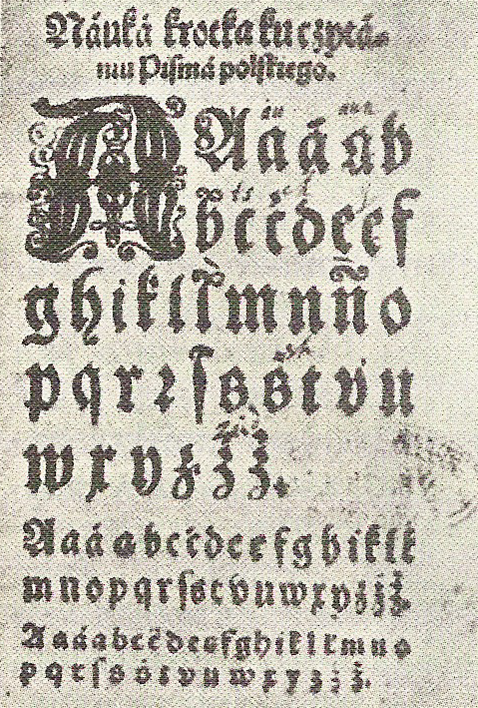 Náuká krotka ku czytá-
niu Pisma polskiego.
A A a á ą b
b́ c ć d e ę f
g h i k l ł m n ñ o
p q r ꝛ ſ s ś t v u
w x y z ź ż.
A a á ą b c ć d e ę f g h i k l ł
m n o p q r ſ s t v u w x y z ź ż
A a á ą b c ć d e ę f g h i k l ł m n o
p q r ſ s ś t v u w x y z ź ż.